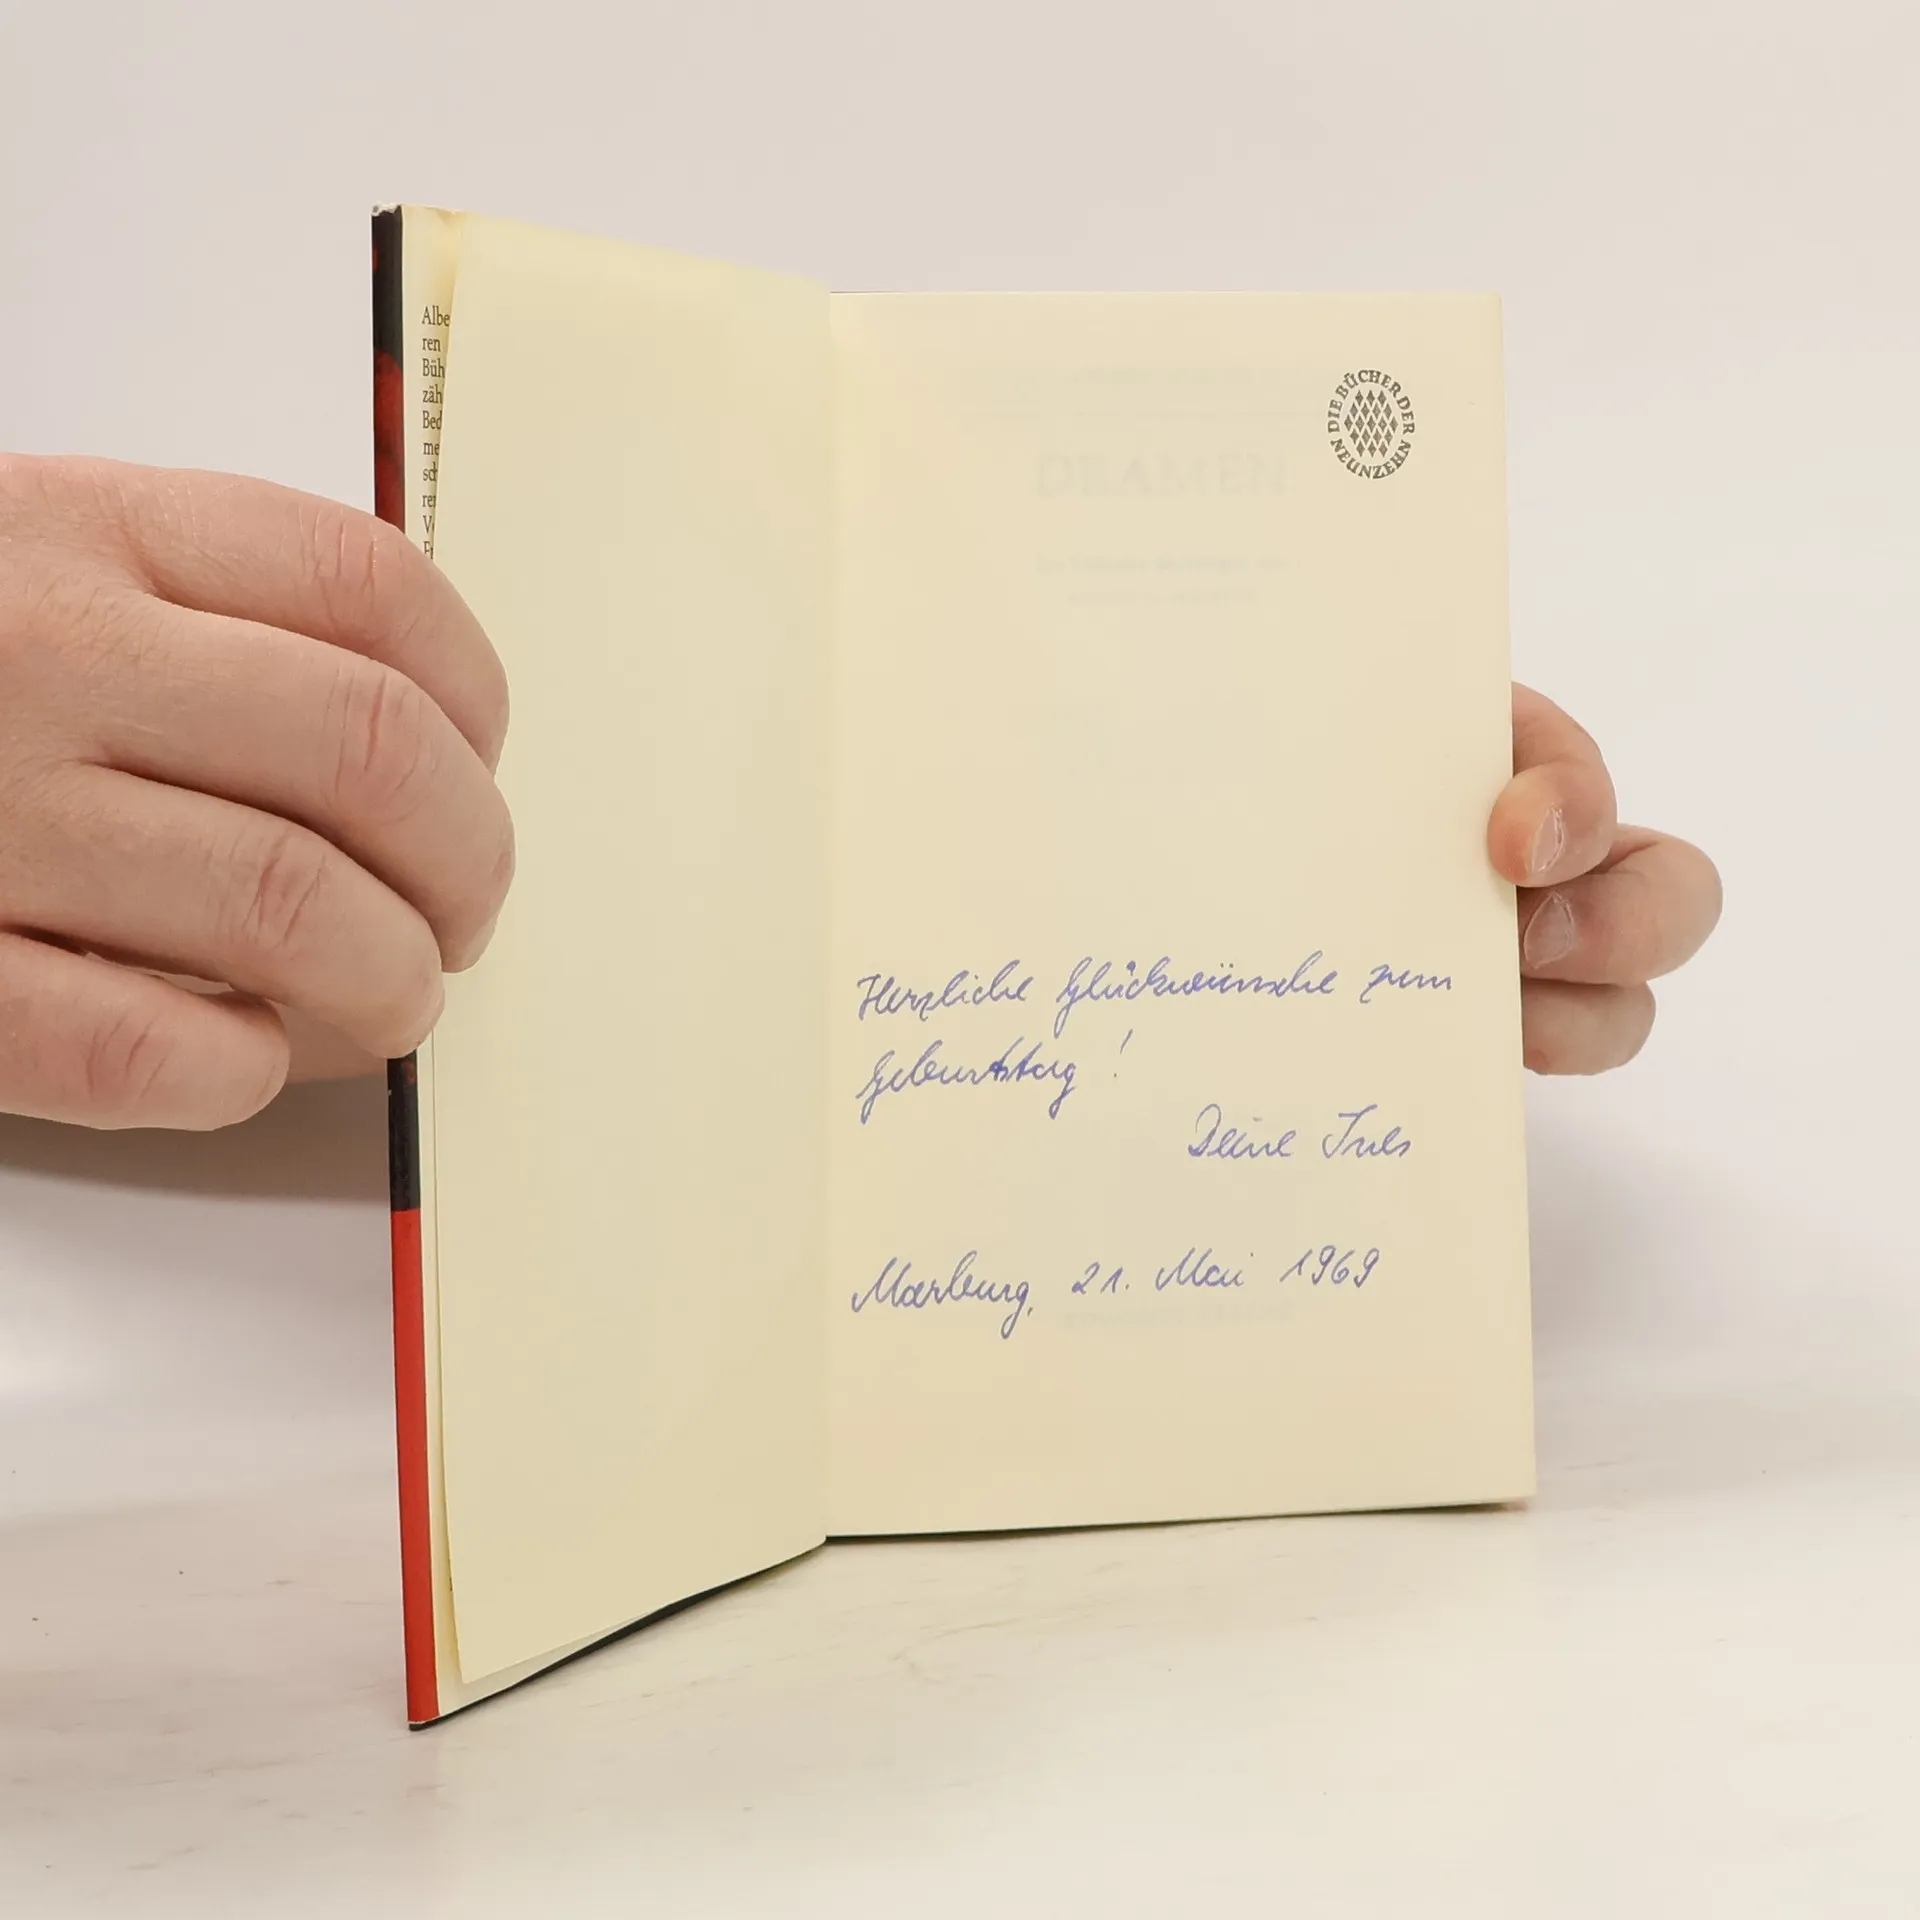 Albe
ren
Büh
zäh
Bed
me
sch
ren
DIE BÜCHER DER NEUNZEHN
DRAMEN
Herzliche Glückwünsche zum
Geburtstag!
Deine Ines
Marburg, 21. Mai 1969